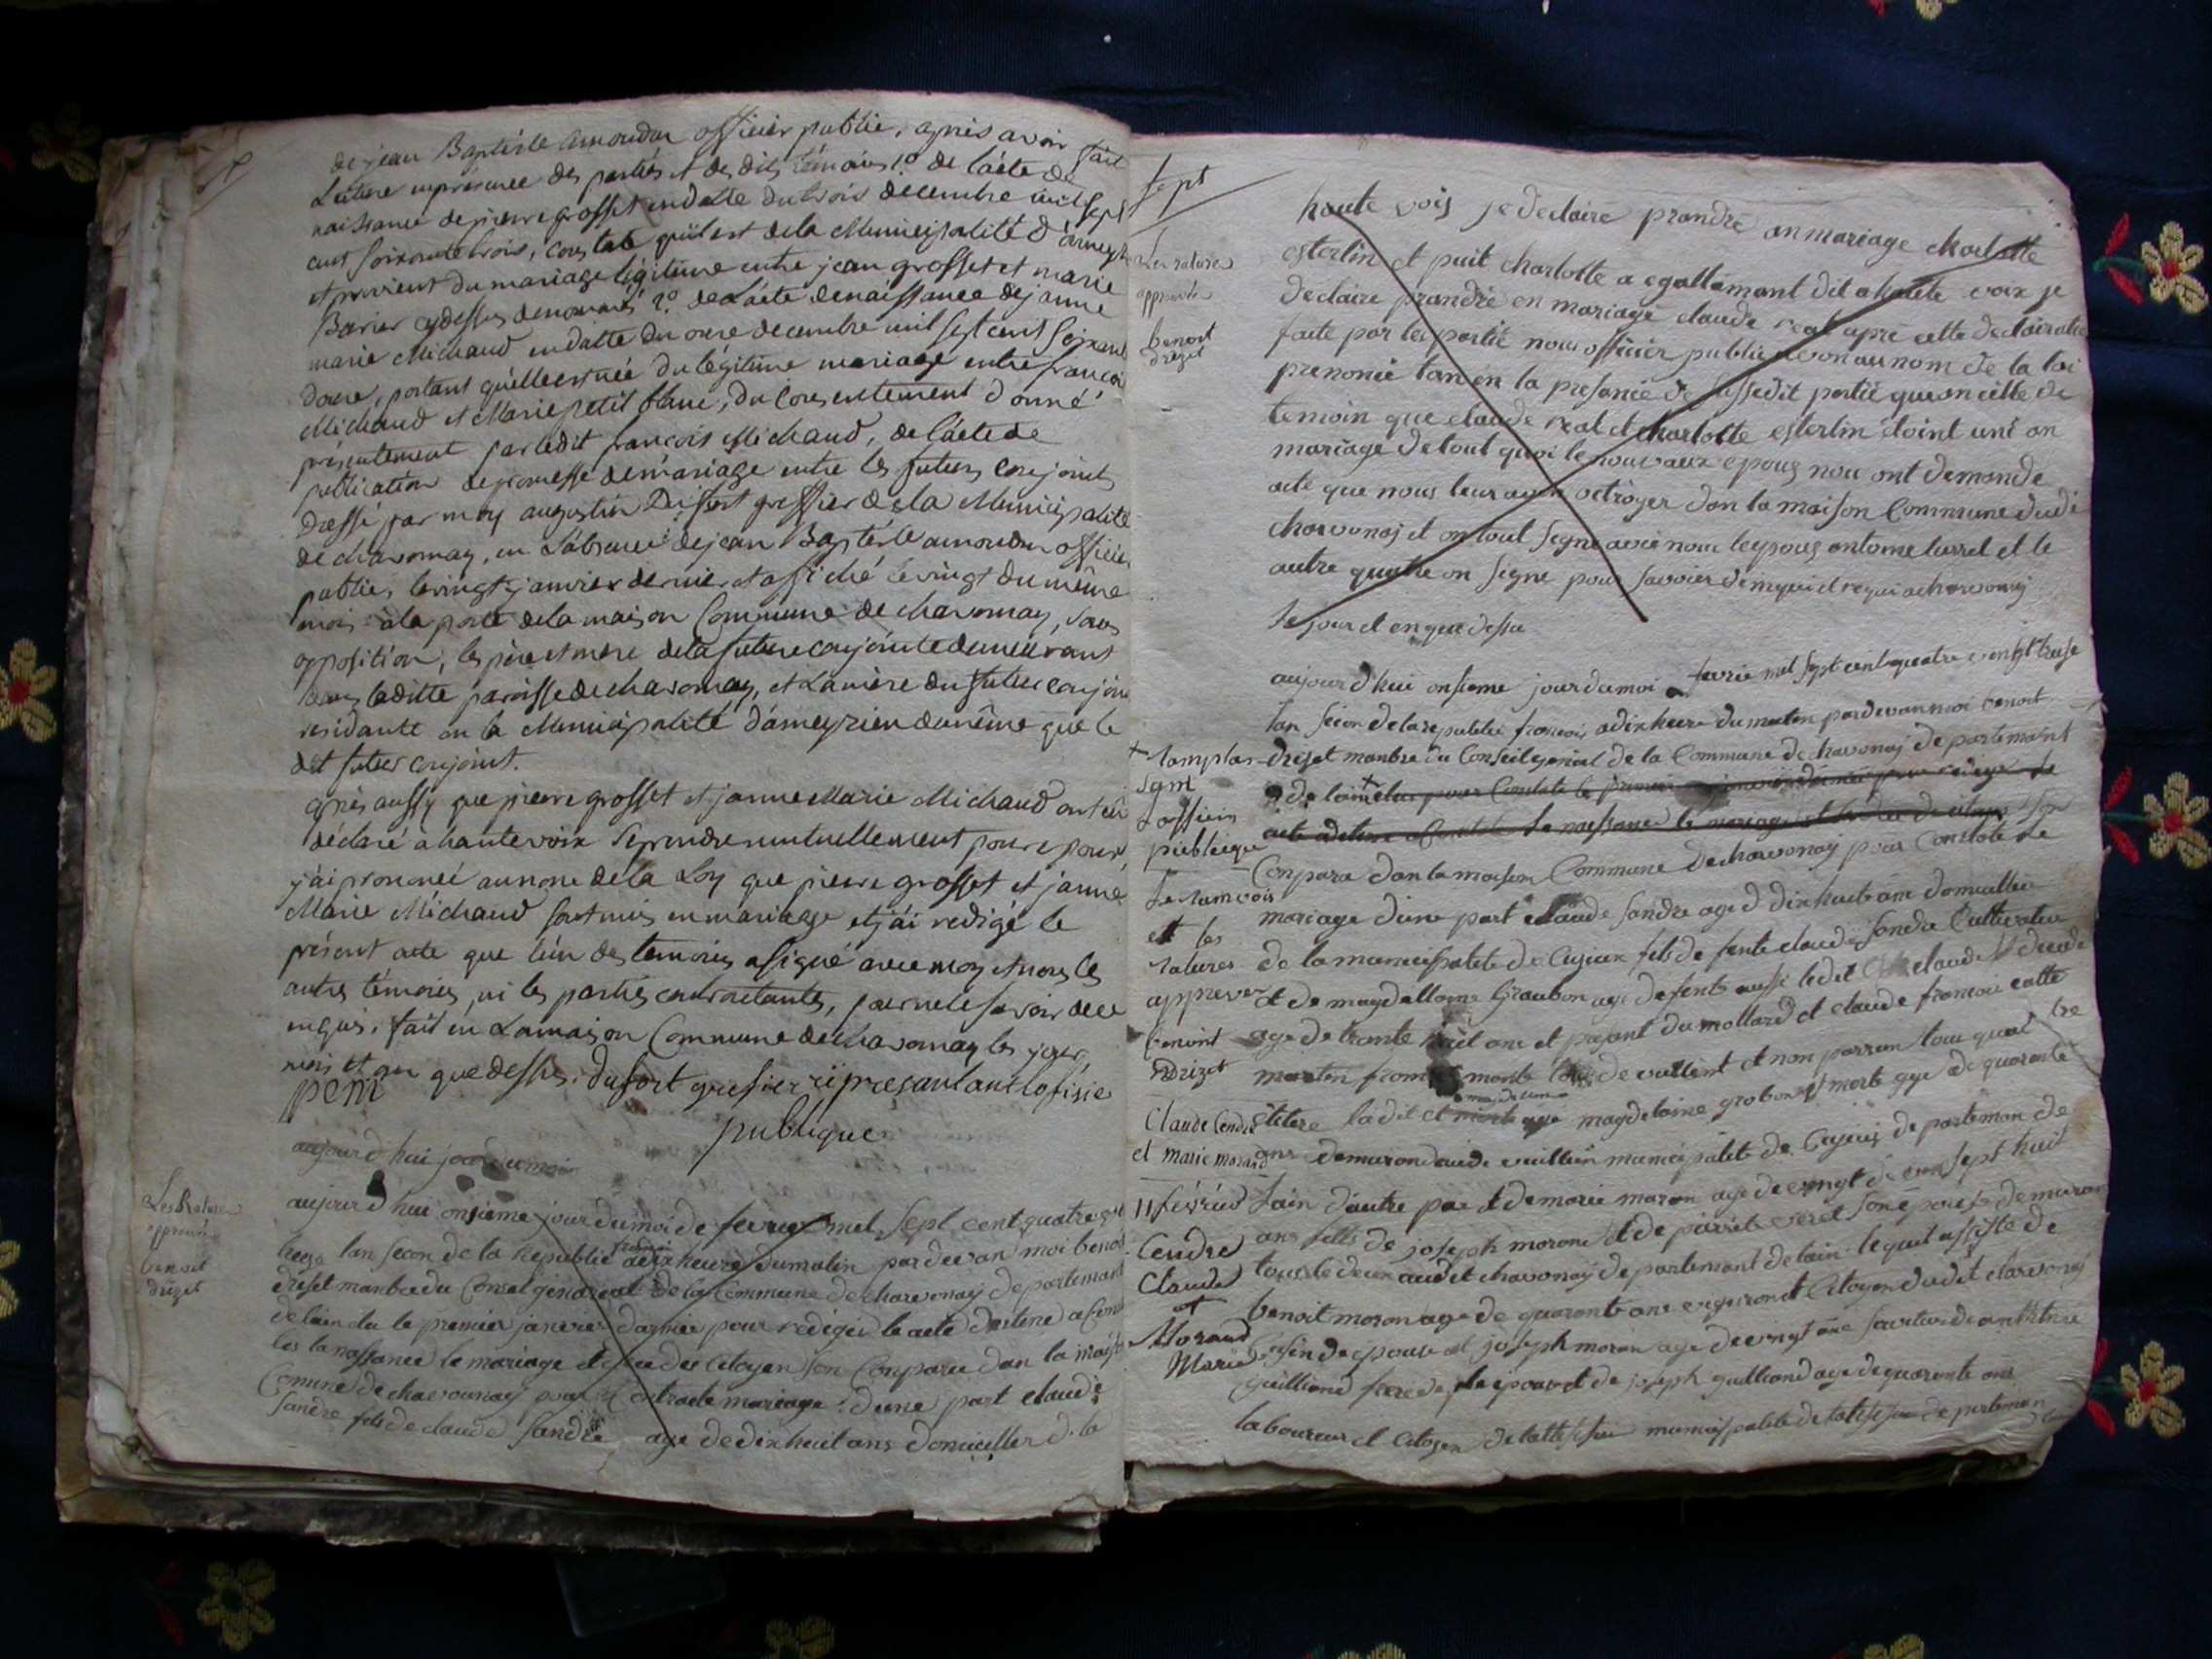 de jean Baptiste amoudru officier public, apres avoir fait
Lecture en présence des parties et des dits témoins 1º de l'acte de
naissance de pierre grosset en datte du trois decembre mil sept
cent soixante trois, constate qu'il est de la Municipalité d'ameyz
et provient du mariage légitime entre jean grosset et marie
Barier cydessus denommés 2º de l'acte de naissance de janne
marie Michaud en datte du onze decembre mil sept cent soixante
douze, portant qu'elle est née du légitime mariage entre françois
Michaud et Marie petit blanc, du consentement donné
présentement par ledit françois Michaud, de l'acte de
publication de promesse de mariage entre les futurs conjoints
dressé par moy augustin Dufort greffier de la Municipalité
de chavornay, en l'absence de jean Baptiste amoudru officier
public, le vingt janvier dernier et affiché le vingt du même
mois à la porte de la maison Commune de chavornay, sans
opposition, les père et mere de la future conjointe demeurant
dans laditte paroisse de chavornay, et la mère du futur conjoint
residante en la Municipalité d'ameyzieu de même que le
dit futur conjoint.
après aussy que pierre grosset et janne Marie Michaud ont eu
déclaré à haute voix se prendre mutuellement pour epoux,
j'ai prononcé au nom de la Loy que pierre grosset et janne
Marie Michaud sont unis en mariage et j'ai redigé le
présent acte que l'un des temoins a signé avec moy et non les
autres témoins, ni les parties contractantes, pour ne le savoir de ce
enquis, fait en la maison Commune de chavornay les jour,
mois et an que dessus. dufort grefier représantant lofisie
pem
publique
aujourd hui jour du moi
Les Ratures
approuvée
benoit
drizet
aujourd hui onsieme jour du moi de fevrie mel sept cent quatre vin
treze lan secon de la republic francois a dix heure du matin par devan moi benoit
drizet manbre du Conseil general de la Commune de charvonaj departemant
de lain elu le premier janvier dernier pour rediger le acte destine a Cons
les la naissance le mariage et desces des Citoyen son Conparu dan la maison
Comune de chavounay pour Contracte mariage dune part claude
sandre fils de claude sandre age de dix huit ans domiceller de la
sept
Les ratures
approuvée
benoit
drizet
haute vois je declaire prandre an mariage charlotte
esterlin et puit charlotte a egallemant dit a haute voix je
declaire prandre en mariage claude real apre cette declairation
faite par les partie nous officier public avon au nom de la loi
prenonce lan en la presance de sussedit partie que on cette de
temoin que claude real et charlotte esterlin etoint uni an
mariage de tout quoi le nouvaux epoux nou ont demande
acte que nous leur avon octroyer dan la maison Commune dudi
charvonaj et on tout segne avec nous leypoux antome turrel et le
autre quatre on segne pour savoier denquei et requi a charvonaj
le jour et en que dessu
aujourd hui onsieme jour du moi fevrie mil sept cent quatre vingt treise
lan secon de la republic francois a dix heure du matin par devan moi benoit
drizet manbre du Conseil general de la Commune de chavonaj departemant
de lain elus pour Constate le
acte destine a Constate la naissance le mariage et le deces de citoyen son
Conparu dan la maison Commune de charvonaj pour Constate le
mariage dune part claude sandre age d dix huit ans domicellie
de la municipalite de Cuzieux fils de fente claude sandre Cultivateu
et de magdallaine Graubon age defente aussi ledit claude decede
age de trante huit ans et pajant du mollard et claude francois catte
marten de vuillent et non parran tou quatre
magdelaine
etitere la dit et morte age magdelaine grobon morte age de quarante
ans demurand aude vuillien municipalite de Cuzieux departeman de
lain dautre part de marie moron age de vingt
ans felle de joseph moron et de pierrete veret son epouse demuran
tous le deux audit chavonaj departemant de lain lequel assiste de
benoit moron age de quarante ans vigneront Citoyen dudit charvonaj
Cosin de epouse et joseph moron age de vingt ans
guilliand frere de epouse et de joseph guilliand age de quarante ans
laboureur et Citoyen de municipalite de departeman
+ Samplas
sgnt
Loffisier
publique
Le ramvois
et les
ratures
appreuve
benoint
Drizet
Claude Cendre
et marie morand
11 février
Cendre
Claude
et
Morand
Marie